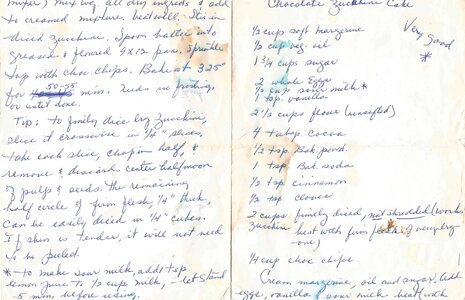 Chocolate Zucchini Cake
½ cup soft margerine
½ cup veg. oil
Very Good *
1¾ cups sugar
2 whole Eggs
½ cup sour milk *
1 tsp. vanilla
2½ cups flour (unsifted)
4 tabsp cocoa
½ tsp. Bak. powd.
1 tsp. Bak. soda
½ tsp cinnamon
½ tsp cloves
2 cups finely diced, not shredded (works
Zucchini best with firm
one)
¼ cup choc chips.
Cream margerine, oil and sugar. Add
eggs, vanilla sour milk, beat with
mixer) mix veg. all dry ingreds & add
to creamed mixture, beat well. Stir in
diced zucchini. Spoon batter into
greased & floured 9x12 pan. Sprinkle
top with choc chips. Bake at 325°
for 50-55 min. Needs no frosting,
or until done.
Tip: to finely dice big zucchini,
slice it crosswise in ¼" slices,
take each slice, chop in half, &
remove & discard center halfmoon
of pulp & seeds. The remaining
half circle of firm flesh, ¼" thick,
can be easily diced in ¼" cubes.
If skin is tender, it will not need
to be peeled.
* - to make sour milk, add 1 tsp.
lemon juice to ½ cup milk, - let stand
5 min. before using.